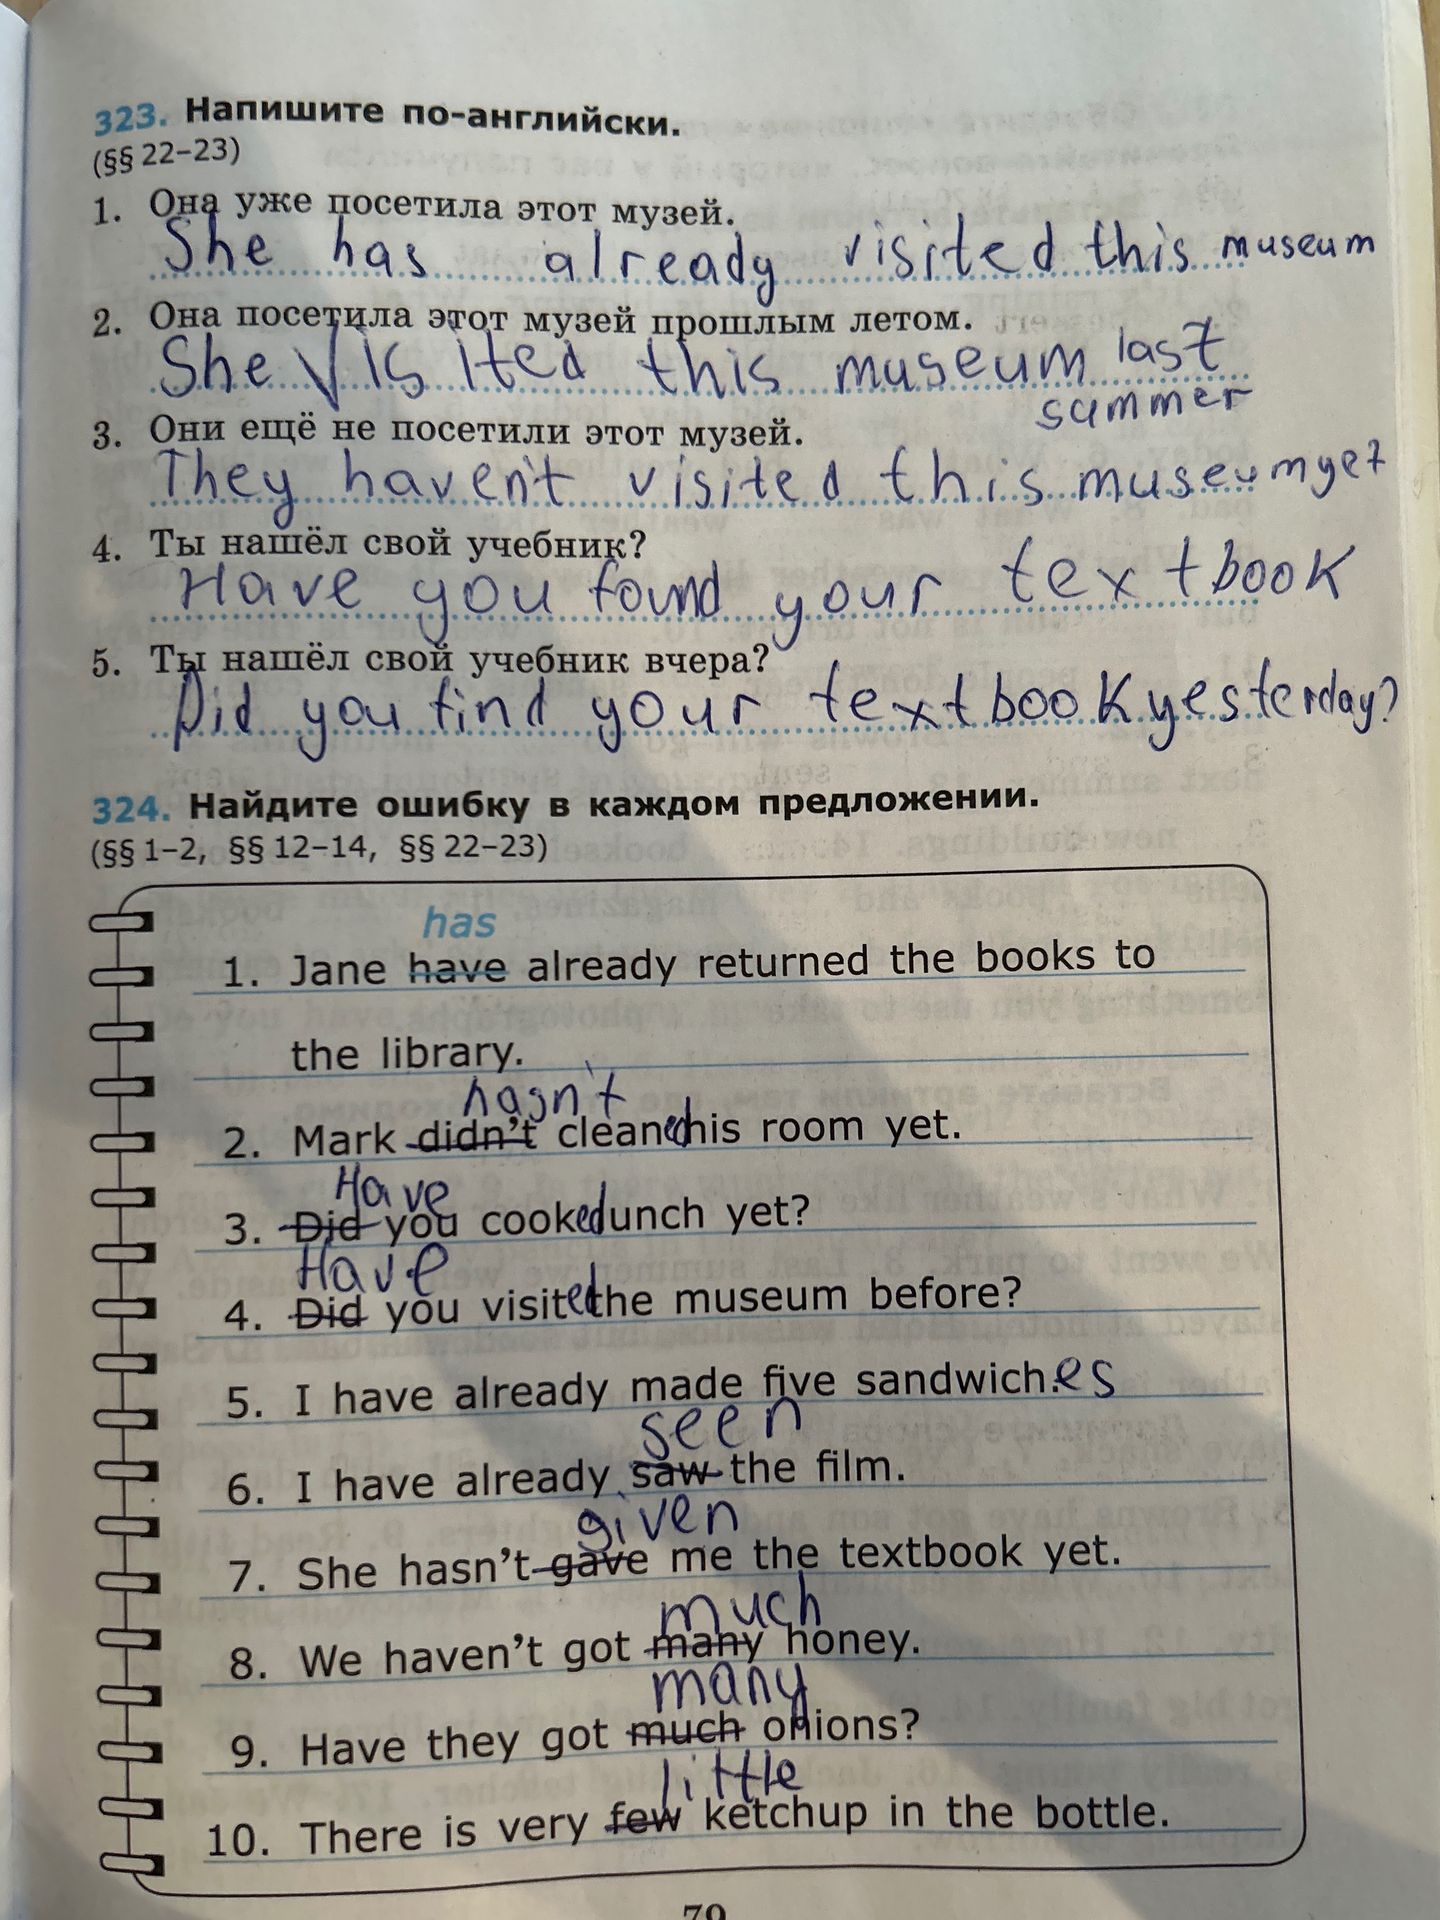 323. Напишите по-английски.
(§§ 22–23)
1. Она уже посетила этот музей.
She has already visited this museum
2. Она посетила этот музей прошлым летом.
She visited this museum last
summer
3. Они ещё не посетили этот музей.
They haven't visited this museum yet
4. Ты нашёл свой учебник?
Have you found your textbook
5. Ты нашёл свой учебник вчера?
Did you find your textbook yesterday?
324. Найдите ошибку в каждом предложении.
(§§ 1–2, §§ 12–14, §§ 22–23)
has
1. Jane have already returned the books to
the library.
hasn't
2. Mark didn't cleaned his room yet.
Have
3. Did you cooked lunch yet?
Have
4. Did you visited the museum before?
5. I have already made five sandwich.es
seen
6. I have already saw the film.
given
7. She hasn't gave me the textbook yet.
much
8. We haven't got many honey.
many
9. Have they got much onions?
little
10. There is very few ketchup in the bottle.
79